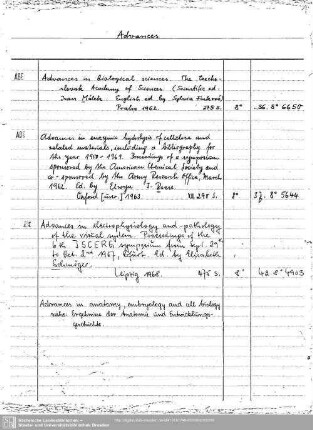 Advances
ABE Advances in biological sciences. The Czecho-
slovak Academy of Sciences. (Scientific ed.
Ivan Málek. English ed. by Sylvia
Praha 1962. 8° 36. 8° 6650
Advances in enzymic hydrolysis of cellulose and
related materials, including a bibliography for
the year 1950-1961. Proceedings of a symposium
sponsored by the American Chemical Society and
co-sponsored by the Army Research Office, March
1962. Ed. by Elwyn T. Reese.
Oxford [usw.] 1963. XII 290 S. 8° 37. 8° 5644
Advances in electrophysiology and -pathology
of the visual system. Proceedings of the
6th ISCERG symposium from Sept. 2nd
to Oct. 2nd 1967, Erfurt. Ed. by Elisabeth
Schmöger.
Leipzig 1968. 475 S. 8° 42. 8° 4903
Advances in anatomy, embryology and cell biology
siehe Ergebnisse der Anatomie und Entwicklungs-
geschichte